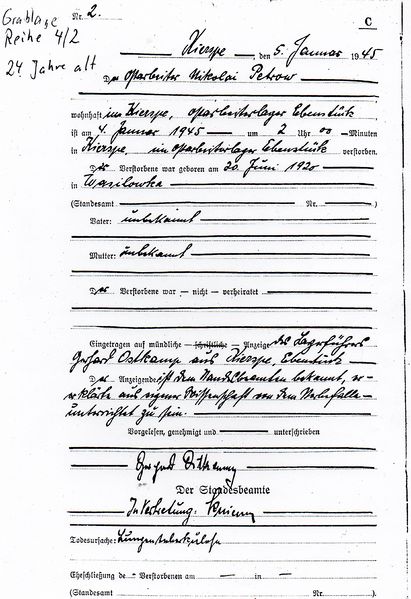 Grablage
Reihe 4/2
24 Jahre alt
Nr. 2.
C
Kierspe, den 5. Januar 1945
Der Ostarbeiter Nikolai Petrow
wohnhaft in Kierspe, Ostarbeiterlager Ebenstück
ist am 4. Januar 1945 um 2 Uhr 00 Minuten
in Kierspe, im Ostarbeiterlager Ebenstück verstorben.
Der Verstorbene war geboren am 20. Juni 1920
in Wasilowka
(Standesamt Nr. )
Vater: unbekannt
Mutter: unbekannt
Der Verstorbene war – nicht – verheiratet
Eingetragen auf mündliche – schriftliche – Anzeige des Lagerführers
Gerhard Ostkamp aus Kierspe, Ebenstück
Der Anzeigende ist dem Standesbeamten bekannt, er
erklärte aus eigener Wissenschaft von dem Sterbefalle
unterrichtet zu sein.
Vorgelesen, genehmigt und unterschrieben
Gerhard
Der Standesbeamte
In Vertretung:
Todesursache: Lungentuberkulose
Eheschließung de – Verstorbenen am – in –
(Standesamt Nr. )